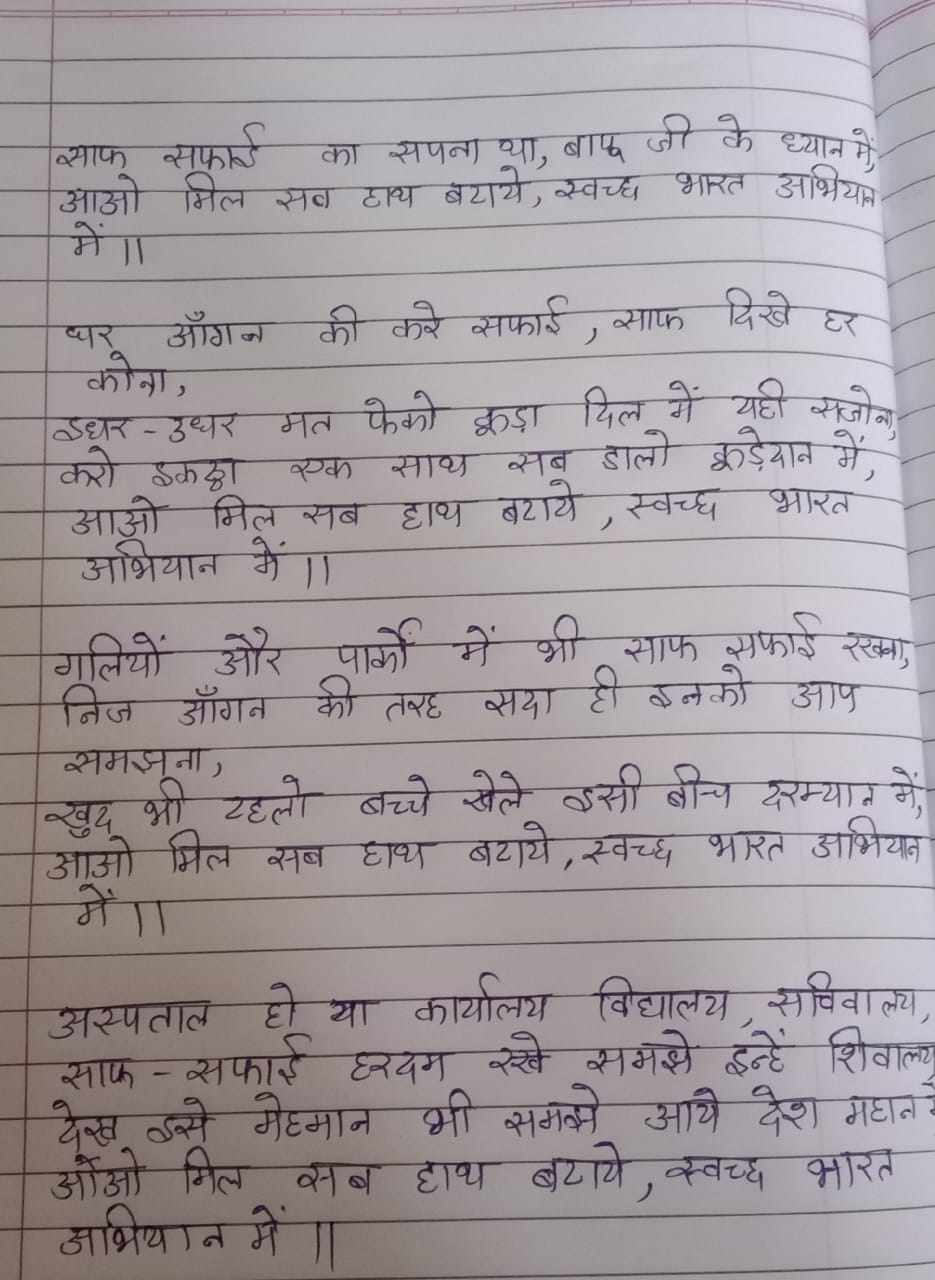 साफ सफाई का सपना था, बापू जी के ध्यान में,
आओ मिल सब हाथ बटाये, स्वच्छ भारत अभियान
में ||
घर आँगन की करे सफाई, साफ दिखे हर
कोना,
इधर-उधर मत फेको कूड़ा दिल में यही सजोना,
करो इकठ्ठा एक साथ सब डालो कूड़ेदान में,
आओ मिल सब हाथ बटाये, स्वच्छ भारत
अभियान में ||
गलियों और पार्कों में भी साफ सफाई रखना,
निज आँगन की तरह सदा ही इनको आप
समझना,
खुद भी टहलो बच्चे खेले इसी बीच दरम्यान में,
आओ मिल सब हाथ बटाये, स्वच्छ भारत अभियान
में ||
अस्पताल हो या कार्यालय विद्यालय, सचिवालय,
साफ-सफाई हरदम रखे समझे इन्हें शिवालय
देख इसे मेहमान भी समझे आये देश महान में
आओ मिल सब हाथ बटाये, स्वच्छ भारत
अभियान में ||